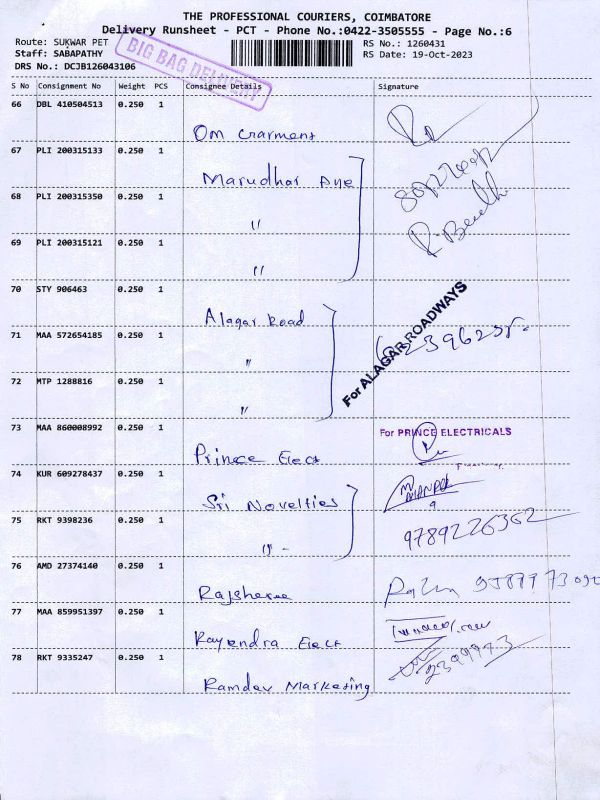 THE PROFESSIONAL COURIERS, COIMBATORE
Delivery Runsheet - PCT - Phone No.:0422-3505555 - Page No.:6
Route: SUKWAR PET
RS No.: 1260431
Staff: SABAPATHY
RS Date: 19-Oct-2023
DRS No.: DCJB126043106
BIG BAG DELIVERY
S No Consignment No Weight PCS Consignee Details Signature
66 DBL 410504513 0.250 1
Om Garment
67 PLI 200315133 0.250 1
Marudhar Ane
68 PLI 200315350 0.250 1
"
69 PLI 200315121 0.250 1
"
70 STY 906463 0.250 1
Alagar Road
For ALAGAR ROADWAYS
71 MAA 572654185 0.250 1
"
72 MTP 1288816 0.250 1
"
73 MAA 860008992 0.250 1
For PRINCE ELECTRICALS
Prince Elect
74 KUR 609278437 0.250 1
Sri Novelties
75 RKT 9398236 0.250 1
9789226362
" -
76 AMD 27374140 0.250 1
Rajshree
77 MAA 859951397 0.250 1
Rajendra Elect
78 RKT 9335247 0.250 1
Ramdev Marketing